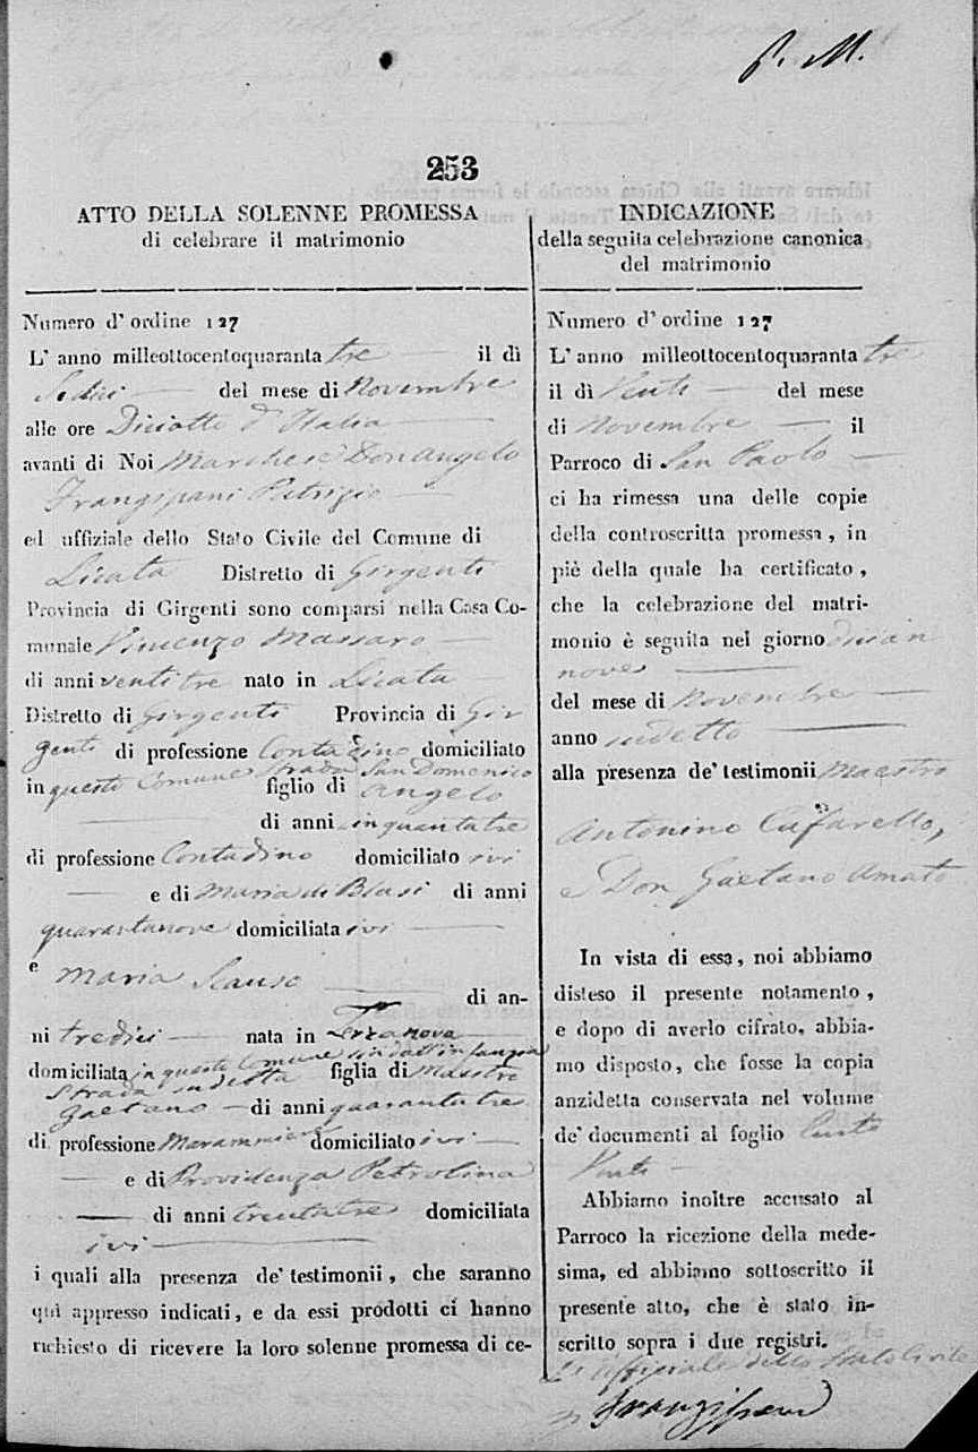 P. M.
253
ATTO DELLA SOLENNE PROMESSA
di celebrare il matrimonio
Numero d'ordine 127
L' anno milleottocentoquaranta tre il dì
Sedici del mese di Novembre
alle ore Diciotto d'Italia
avanti di Noi Marchese Don Angelo
Frangipani Patrizio
ed uffiziale dello Stato Civile del Comune di
Licata Distretto di Girgenti
Provincia di Girgenti sono comparsi nella Casa Co-
munale Vincenzo Massaro
di anni venti tre nato in Licata
Distretto di Girgenti Provincia di Gir
genti di professione Contadino domiciliato
in questo Comune Strada San Domenico
figlio di Angelo
di anni cinquantatre
di professione Contadino domiciliato ivi
e di Maria di Blasi di anni
quarantanove domiciliata ivi
e Maria Scauso
di an-
ni tredici nata in Terranova
domiciliata in questo Comune sin dall'infanzia
Strada sudetta figlia di Maestro
Gaetano di anni quarantatre
di professione Marammiere domiciliato ivi
e di Providenza Petrolina
di anni trentatre domiciliata
ivi
i quali alla presenza de' testimonii, che saranno
qui appresso indicati, e da essi prodotti ci hanno
richiesto di ricevere la loro solenne promessa di ce-
INDICAZIONE
della seguita celebrazione canonica
del matrimonio
Numero d'ordine 127
L'anno milleottocentoquaranta tre
il dì Venti del mese
di Novembre il
Parroco di San Paolo
ci ha rimessa una delle copie
della controscritta promessa, in
piè della quale ha certificato,
che la celebrazione del matri-
monio è seguita nel giorno dician
nove
del mese di Novembre
anno sudetto
alla presenza de' testimonii Maestro
Antonino Cafarello,
e Don Gaetano Amato
In vista di essa, noi abbiamo
disteso il presente notamento,
e dopo di averlo cifrato, abbia-
mo disposto, che fosse la copia
anzidetta conservata nel volume
de' documenti al foglio Cento
Venti
Abbiamo inoltre accusato al
Parroco la ricezione della mede-
sima, ed abbiamo sottoscritto il
presente atto, che è stato in-
scritto sopra i due registri.
L'uffiziale dello Stato Civile
Frangipani